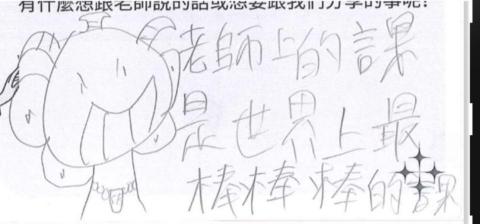 有什麼想跟老師說的話或想要跟我們分享的事呢?
老師上的課
是世界上最
棒棒棒的課